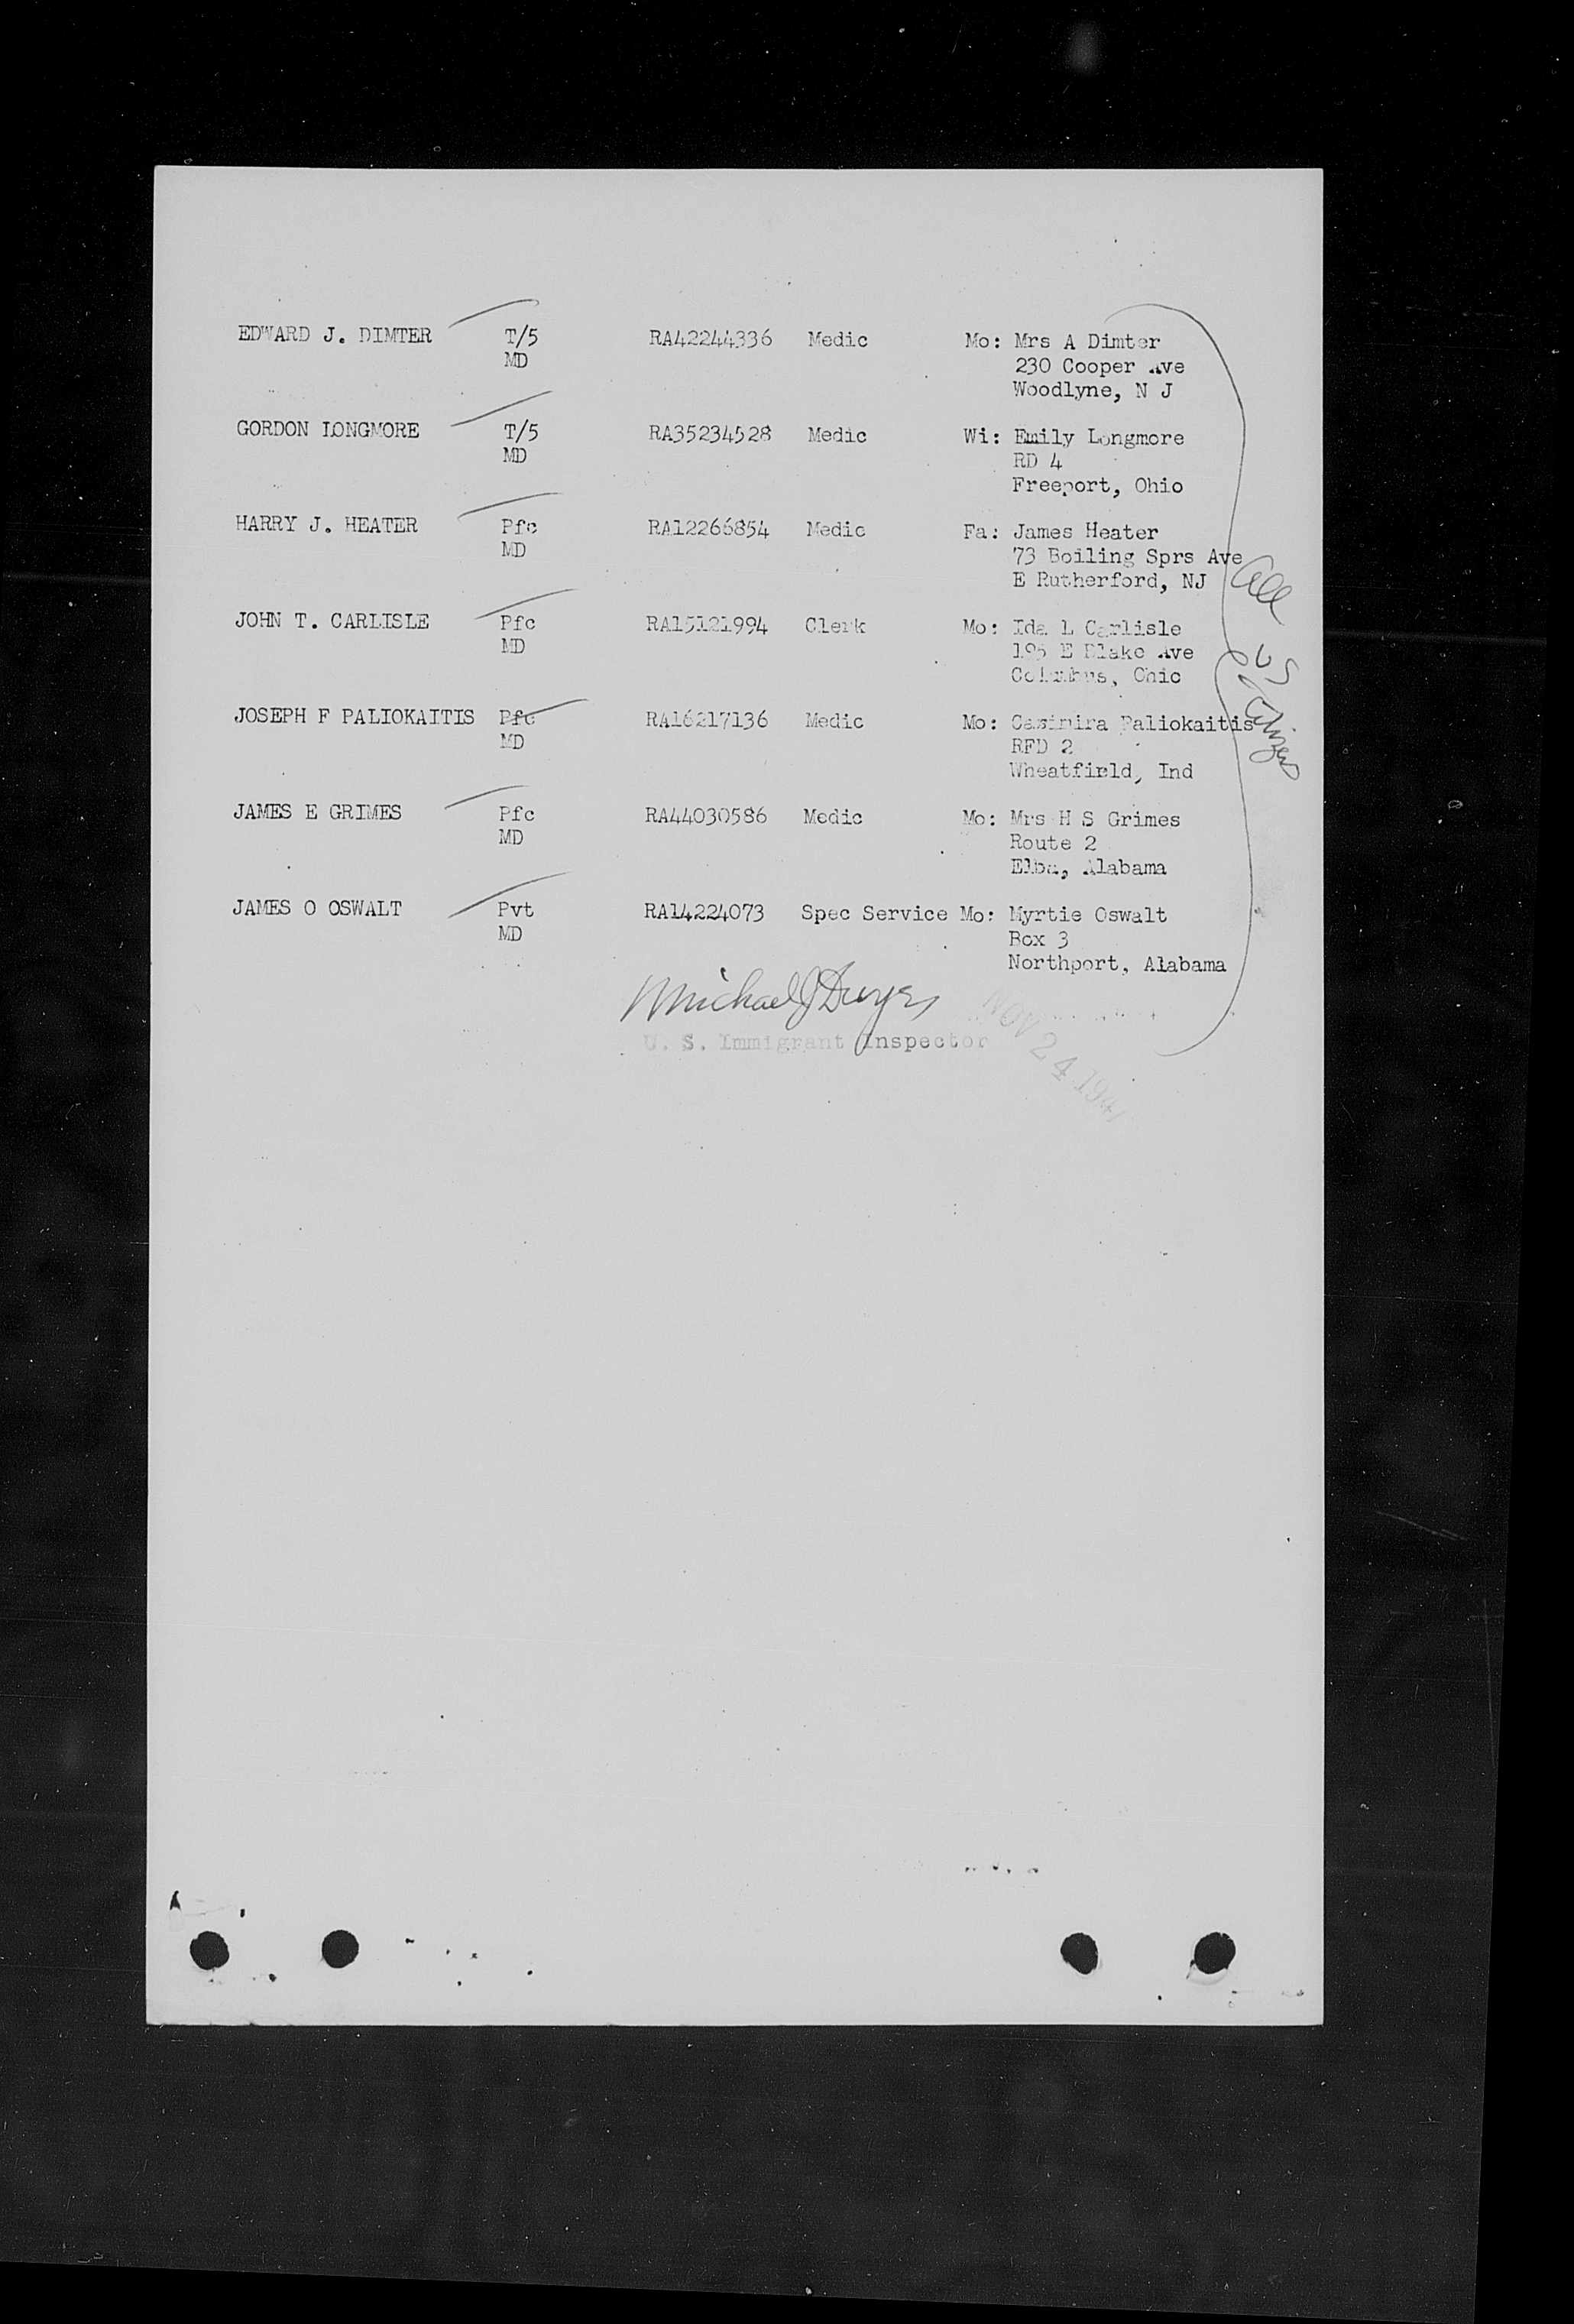 EDWARD J. DIMTER T/5 RA42244336 Medic Mo: Mrs A Dimter
MD 230 Cooper Ave
Woodlyne, N J
GORDON LONGMORE T/5 RA35234528 Medic Wi: Emily Longmore
MD RD 4
Freeport, Ohio
HARRY J. HEATER Pfc RA12266854 Medic Fa: James Heater
MD 73 Boiling Sprs Ave
E Rutherford, NJ
JOHN T. CARLISLE Pfc RA15121994 Clerk Mo: Ida L Carlisle
MD 195 E Blake Ave
Columbus, Ohio
JOSEPH F PALIOKAITIS Pfc RA16217136 Medic Mo: Casimira Paliokaitis
MD RFD 2
Wheatfield, Ind
JAMES E GRIMES Pfc RA44030586 Medic Mo: Mrs H S Grimes
MD Route 2
Elba, Alabama
JAMES O OSWALT Pvt RA14224073 Spec Service Mo: Myrtie Oswalt
MD Box 3
Northport, Alabama
All US Citizens
Michael J Dwyer
U. S. Immigrant Inspector
NOV 24 194